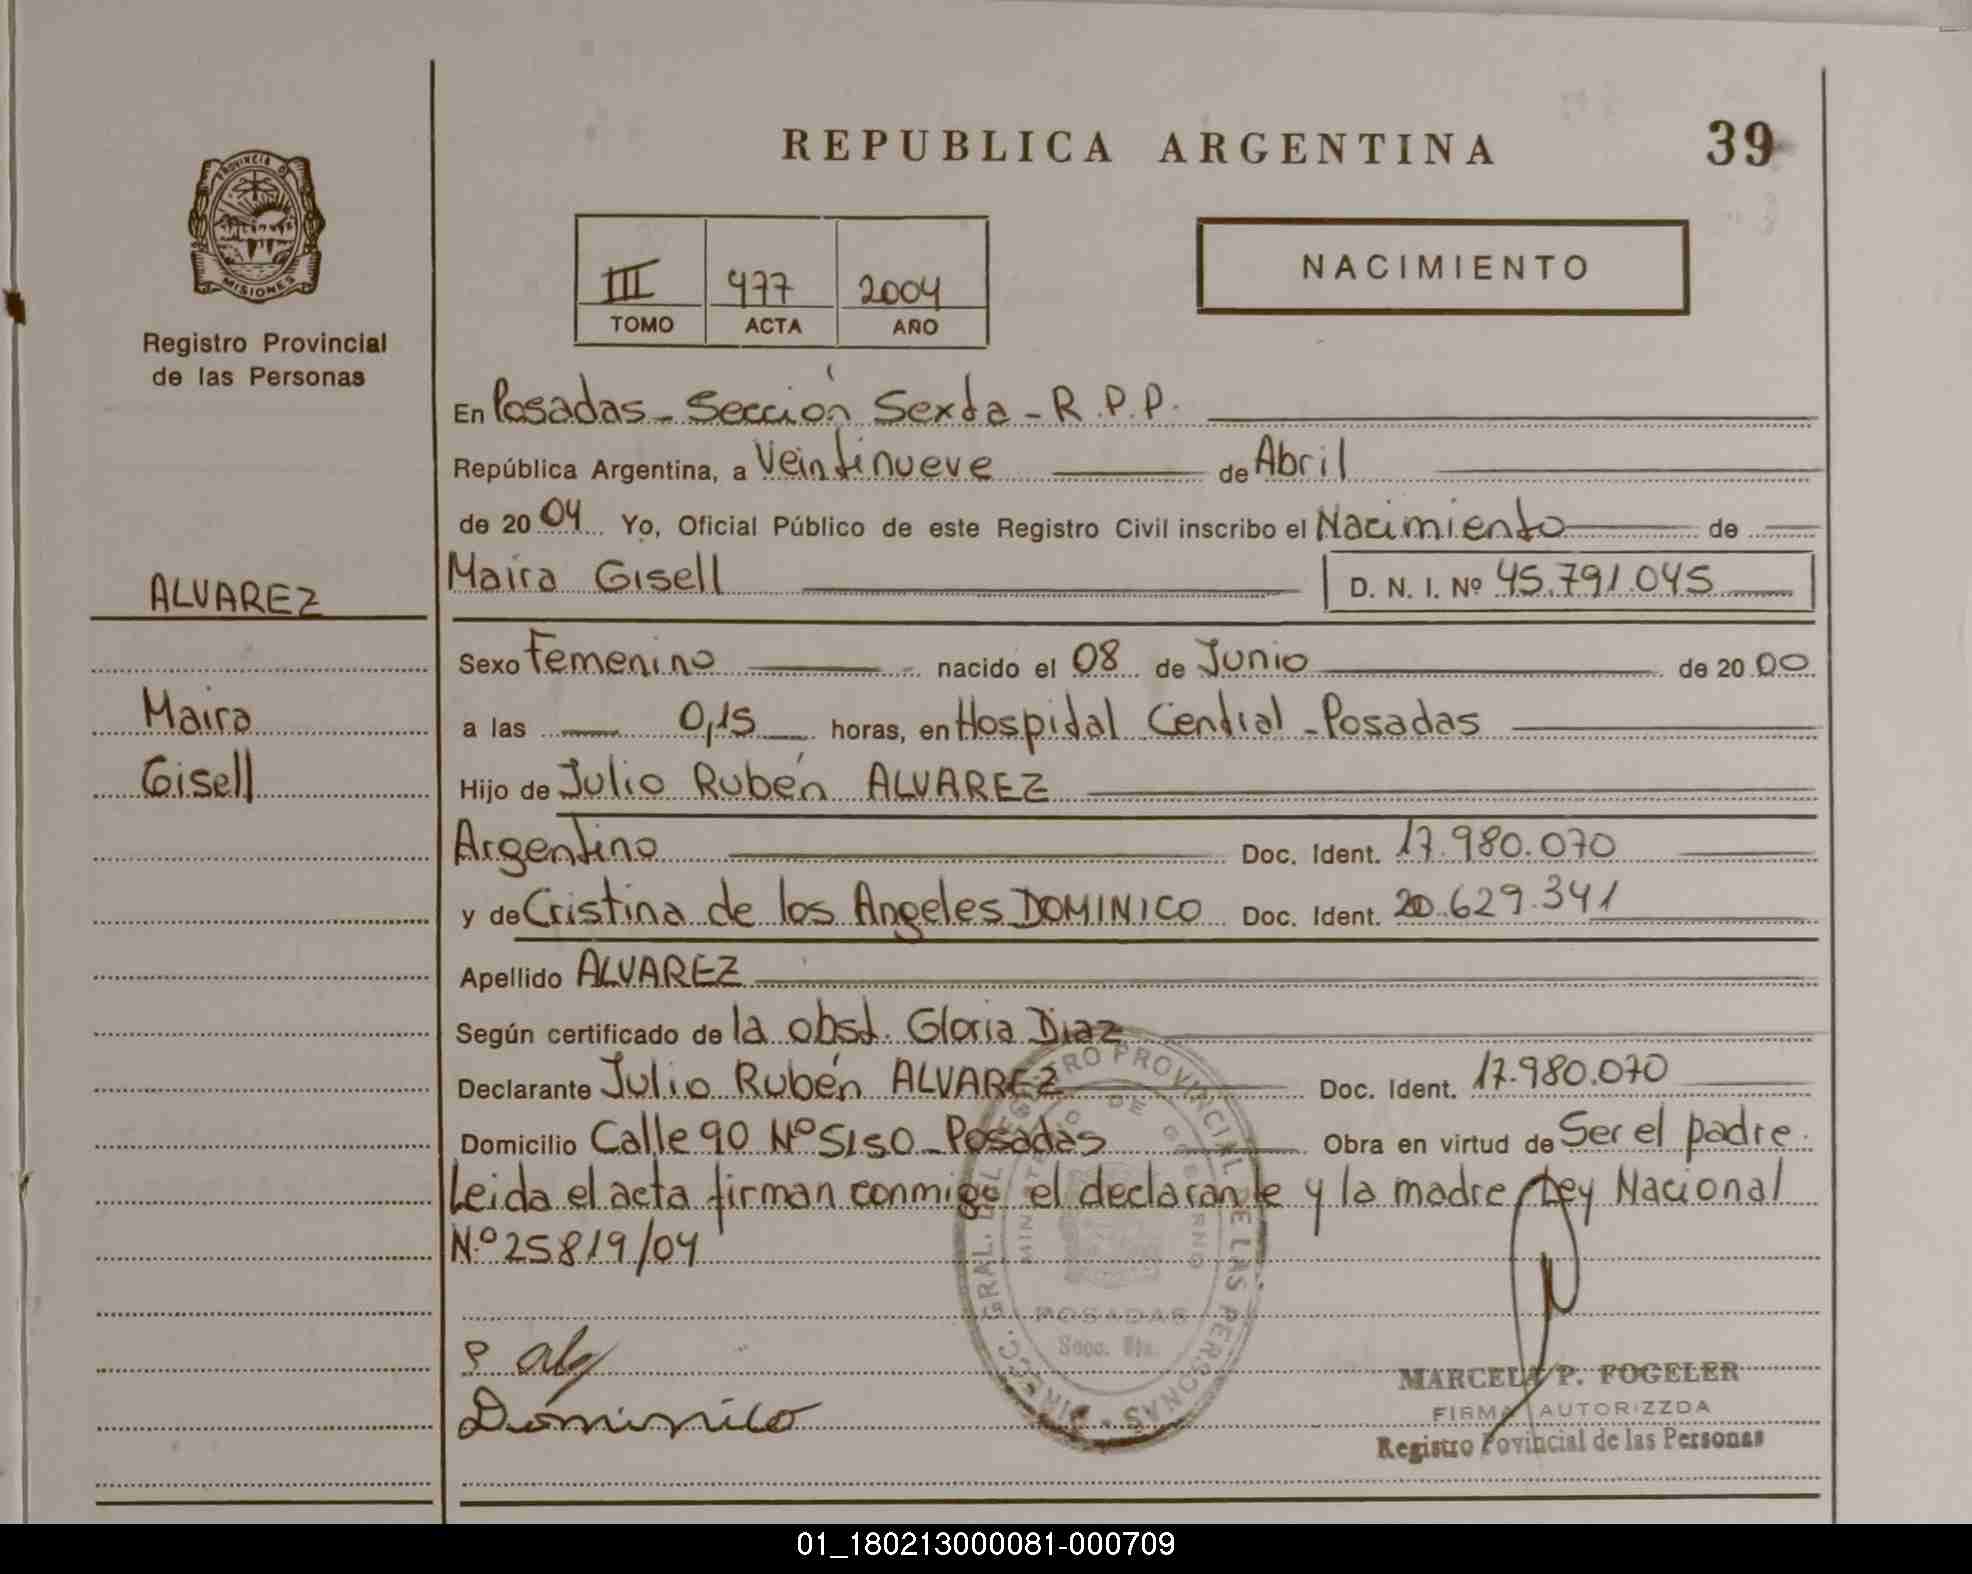 REPUBLICA ARGENTINA
39
PROVINCIA DE
MISIONES
Registro Provincial
de las Personas
III 477 2004
TOMO ACTA AÑO
NACIMIENTO
En Posadas - Sección Sexta - R.P.P.
República Argentina, a Veintinueve de Abril
de 2004 Yo, Oficial Público de este Registro Civil inscribo el Nacimiento de
Maira Gisell D. N. I. Nº 45.791.045
ALVAREZ
Maira
Gisell
Sexo Femenino nacido el 08 de Junio de 2000
a las 0,15 horas, en Hospital Central - Posadas
Hijo de Julio Rubén ALVAREZ
Argentino Doc. Ident. 17.980.070
y de Cristina de los Angeles DOMINICO Doc. Ident. 20.629.341
Apellido ALVAREZ
Según certificado de la obst. Gloria Diaz
Declarante Julio Rubén ALVAREZ Doc. Ident. 17.980.070
Domicilio Calle 90 Nº 5150 - Posadas Obra en virtud de Ser el padre.
Leida el acta firman conmigo el declarante y la madre Ley Nacional
N.º 25819/04
DIRECC. GRAL. DEL REGISTRO PROVINCIAL DE LAS PERSONAS
MINISTERIO DE GOBIERNO
POSADAS
Secc.
Dominico
MARCELA P. FOGELER
FIRMA AUTORIZZDA
Registro Povincial de las Personas
01_180213000081-000709